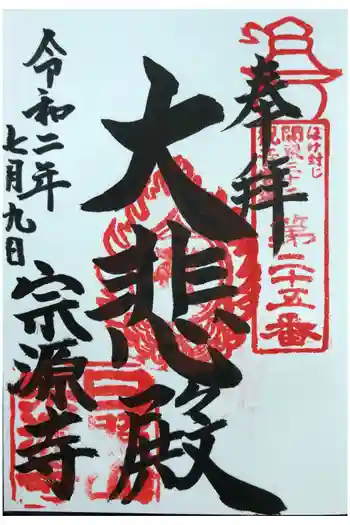 奉拝
ぼけ封じ
第二十五番
大悲殿
宗源寺
令和二年
七月九日